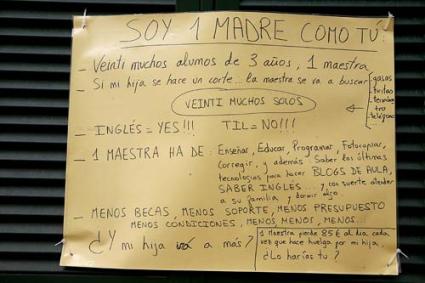 SOY 1 MADRE COMO TÚ.
- Veinti muchos alumos de 3 años, 1 maestra
- Si mi hija se hace un corte... la maestra se va a buscar
gasas
tiritas
termóme
tro
teléfono
VEINTI MUCHOS SOLOS
- INGLÉS = YES!!! TIL = NO!!!
- 1 MAESTRA HA DE: Enseñar, Educar, Programar, Fotocopiar,
Corregir, y además Saber las últimas
tecnologías para hacer BLOGS DE AULA,
SABER INGLES... y con suerte atender
a su familia y dormir algo
- MENOS BECAS, MENOS SOPORTE, MENOS PRESUPUESTO
MENOS CONDICIONES, MENOS, MENOS, MENOS...
¿Y mi hija irá a más?
1 Maestra pierde 85€ al día cada
vez que hace huelga por mi hija.
¿Lo harías tu?